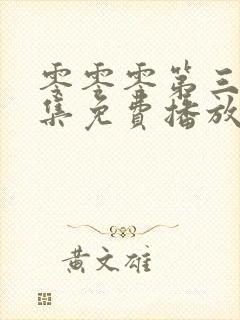 零零零第三
集免費播放
黃文雄